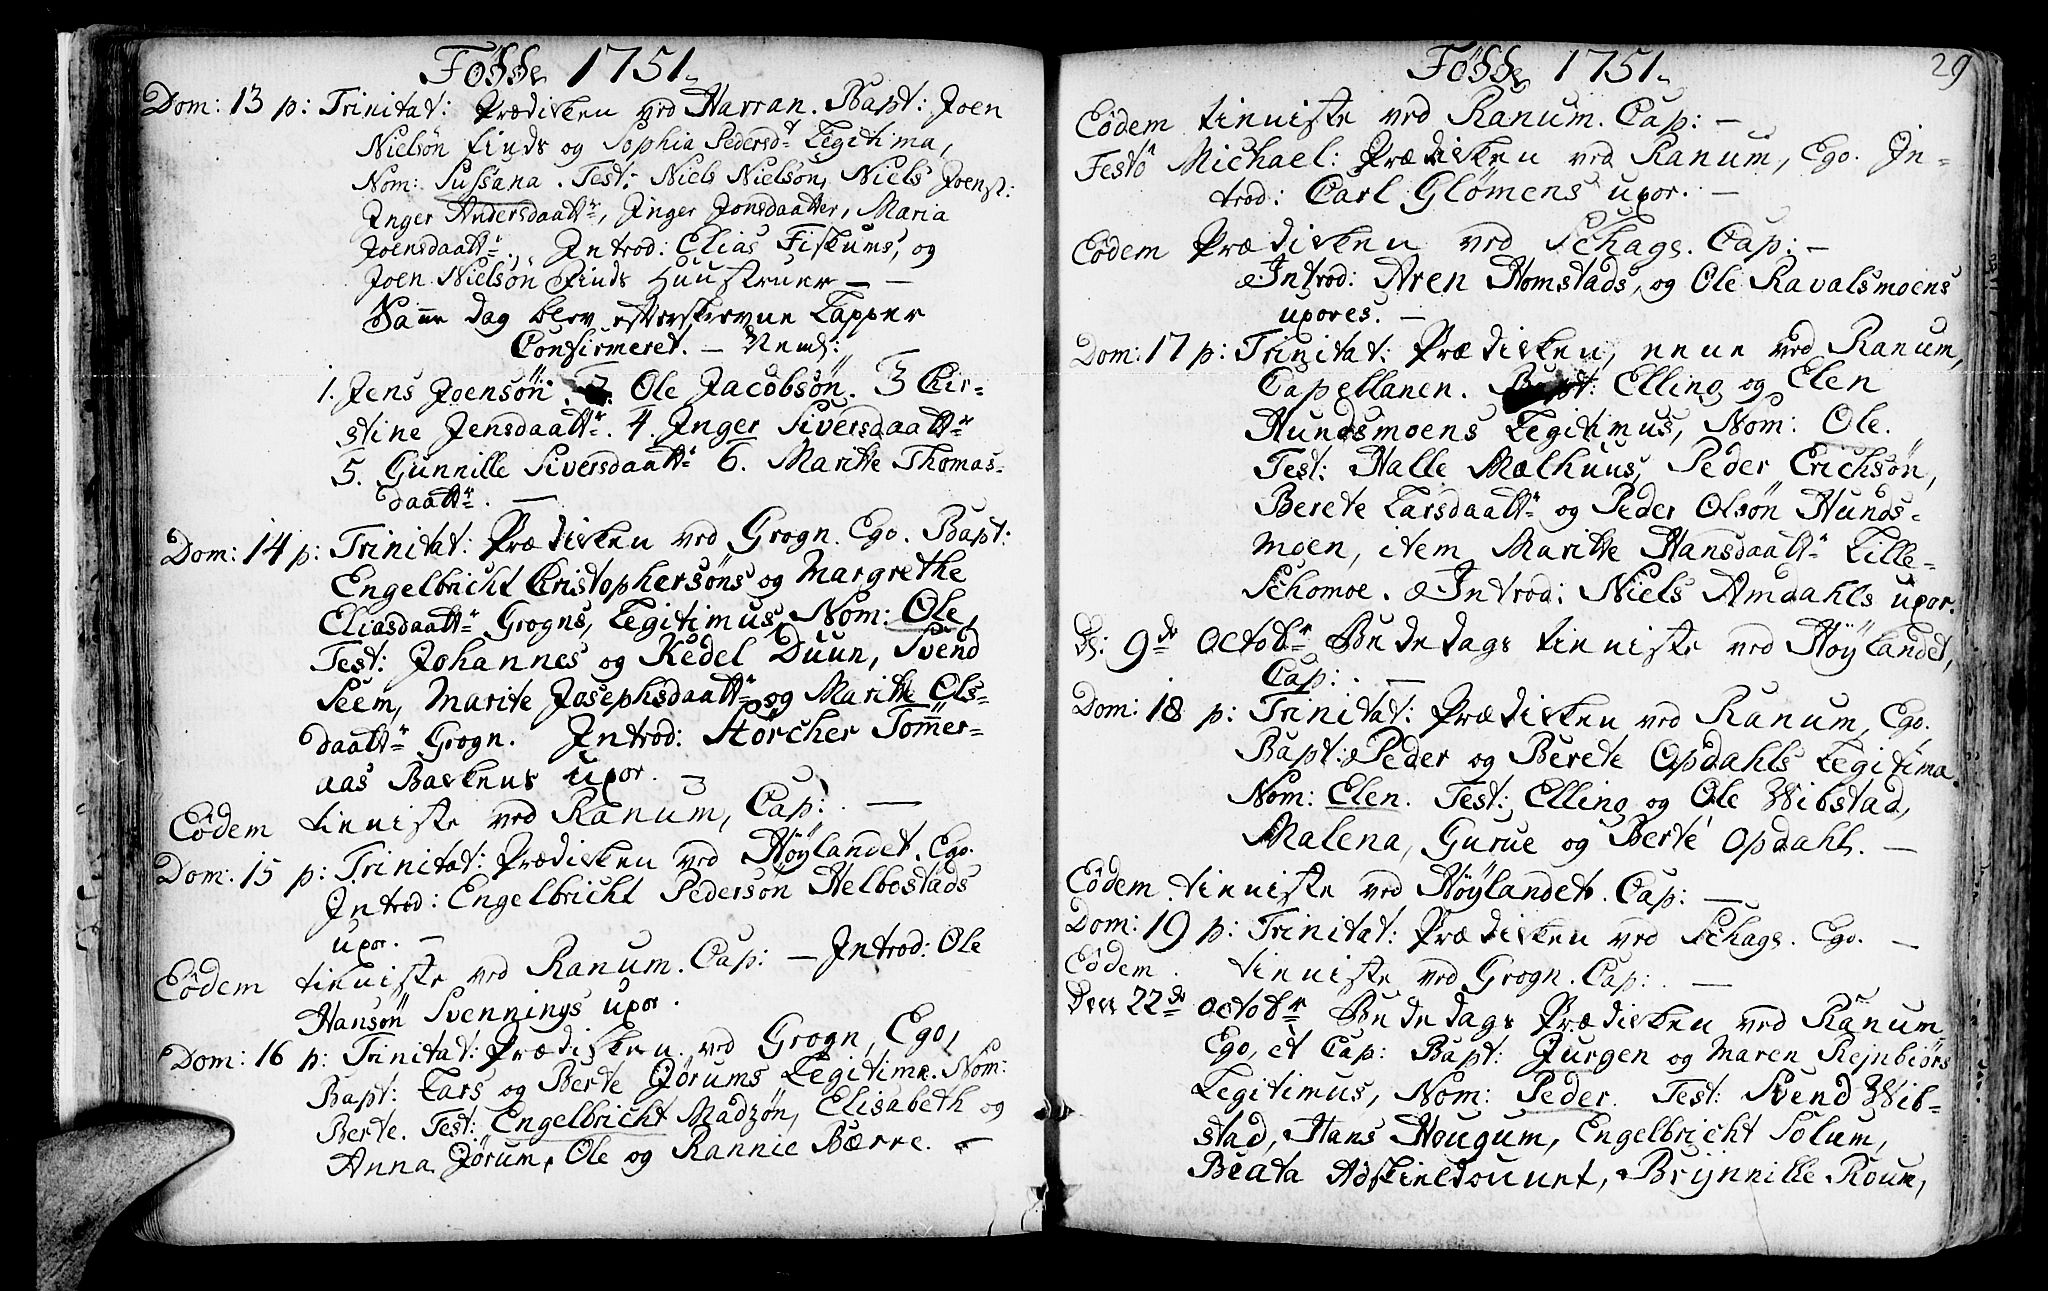 Födde 1751.
Dom: 13 p: Trinitat: Prædiken ved Harran. Bapt: Joen
Nielsön Finds og Sophia Pedersdr Legitima,
Nom: Sussana. Test: Niels Nielsön, Niels Joens:
Inger Andersdaattr, Inger Jonsdaatter, Maria
Joensdaattr. Introd: Elias Fiskums, og
Joen Nielsön Finds Huustruer — —
Samme Dag blev efterskrevne Lapper
Confirmeret. — Neml:
1. Jens Joensön. 2. Ole Jacobsön. 3 Chir-
stine Jensdaattr. 4. Inger Siversdaattr
5. Gunnille Siversdaattr 6. Maritte Thomas-
daattr. —
Dom: 14 p: Trinitat: Prædiken ved Grogn. Ego. Bapt:
Engelbricht Christophersöns og Margrethe
Eliasdaattr Grogns, Legitimus, Nom: Ole,
Test: Johannes og Kedel Duun, Svend
Seem, Marite Josephsdaattr og Maritte Ols-
daattr Grogn. Introd: Hörcher Tömmer-
aas Barkens uxor. —
Eôdem tienniste ved Ranum, Cap: —
Dom: 15 p: Trinitat: Prædiken ved Höylandet. Ego.
Introd: Engelbricht Pedersön Helbostads
uxor. —
Eôdem tienniste ved Ranum. Cap: — Introd: Ole
Hansön Svennings uxor.
Dom: 16 p: Trinitat: Prædiken ved Grogn, Ego,
Bapt: Lars og Berte Jörums Legitima. Nom:
Berte. Test: Engelbricht Madzön, Elisabeth og
Anna Jörum, Ole og Rannie Bærre. —
Födde 1751. 29
Eôdem tienniste ved Ranum. Cap: —
Festô Michael: Prædiken ved Ranum, Ego. In-
trod: Carl Glömens uxor. —
Eôdem Prædiken ved Schags. Cap: —
Introd: Aren Homstads, og Ole Ravalsmoens
uxores. —
Dom: 17 p: Trinitat: Prædiken, nene ved Ranum,
Capellanen. Bapt: Elling og Elen
Hundsmoens Legitimus, Nom: Ole.
Test: Halle Mælhuus, Peder Erichsön,
Berete Larsdaattr og Peder Olsön Hunds-
moen, item Maritte Hansdaattr Lille-
Schomoe. Introd: Niels Amdahls uxor.
D: 9de Octobr Bededags tienniste ved Höylandet,
Cap: —
Dom: 18 p: Trinitat: Prædiken ved Ranum, Ego.
Bapt: Peder og Berete Opdahls Legitima
Nom: Elen. Test: Elling og Ole Wibstad,
Malena, Gurue og Berte Opdahl. —
Eôdem tienniste ved Höylandet. Cap: —
Dom: 19 p: Trinitat: Prædiken ved Schags. Ego. —
Eôdem tienniste ved Grogn. Cap: —
Den 22de Octobr Bededags Prædiken ved Ranum
Ego, et Cap: Bapt: Jurgen og Maren Rejnbiörs
Legitimus, Nom: Peder. Test: Svend Wib-
stad, Hans Hougum, Engelbricht Solum,
Beata Adskieltouuet, Brynnille Roum,